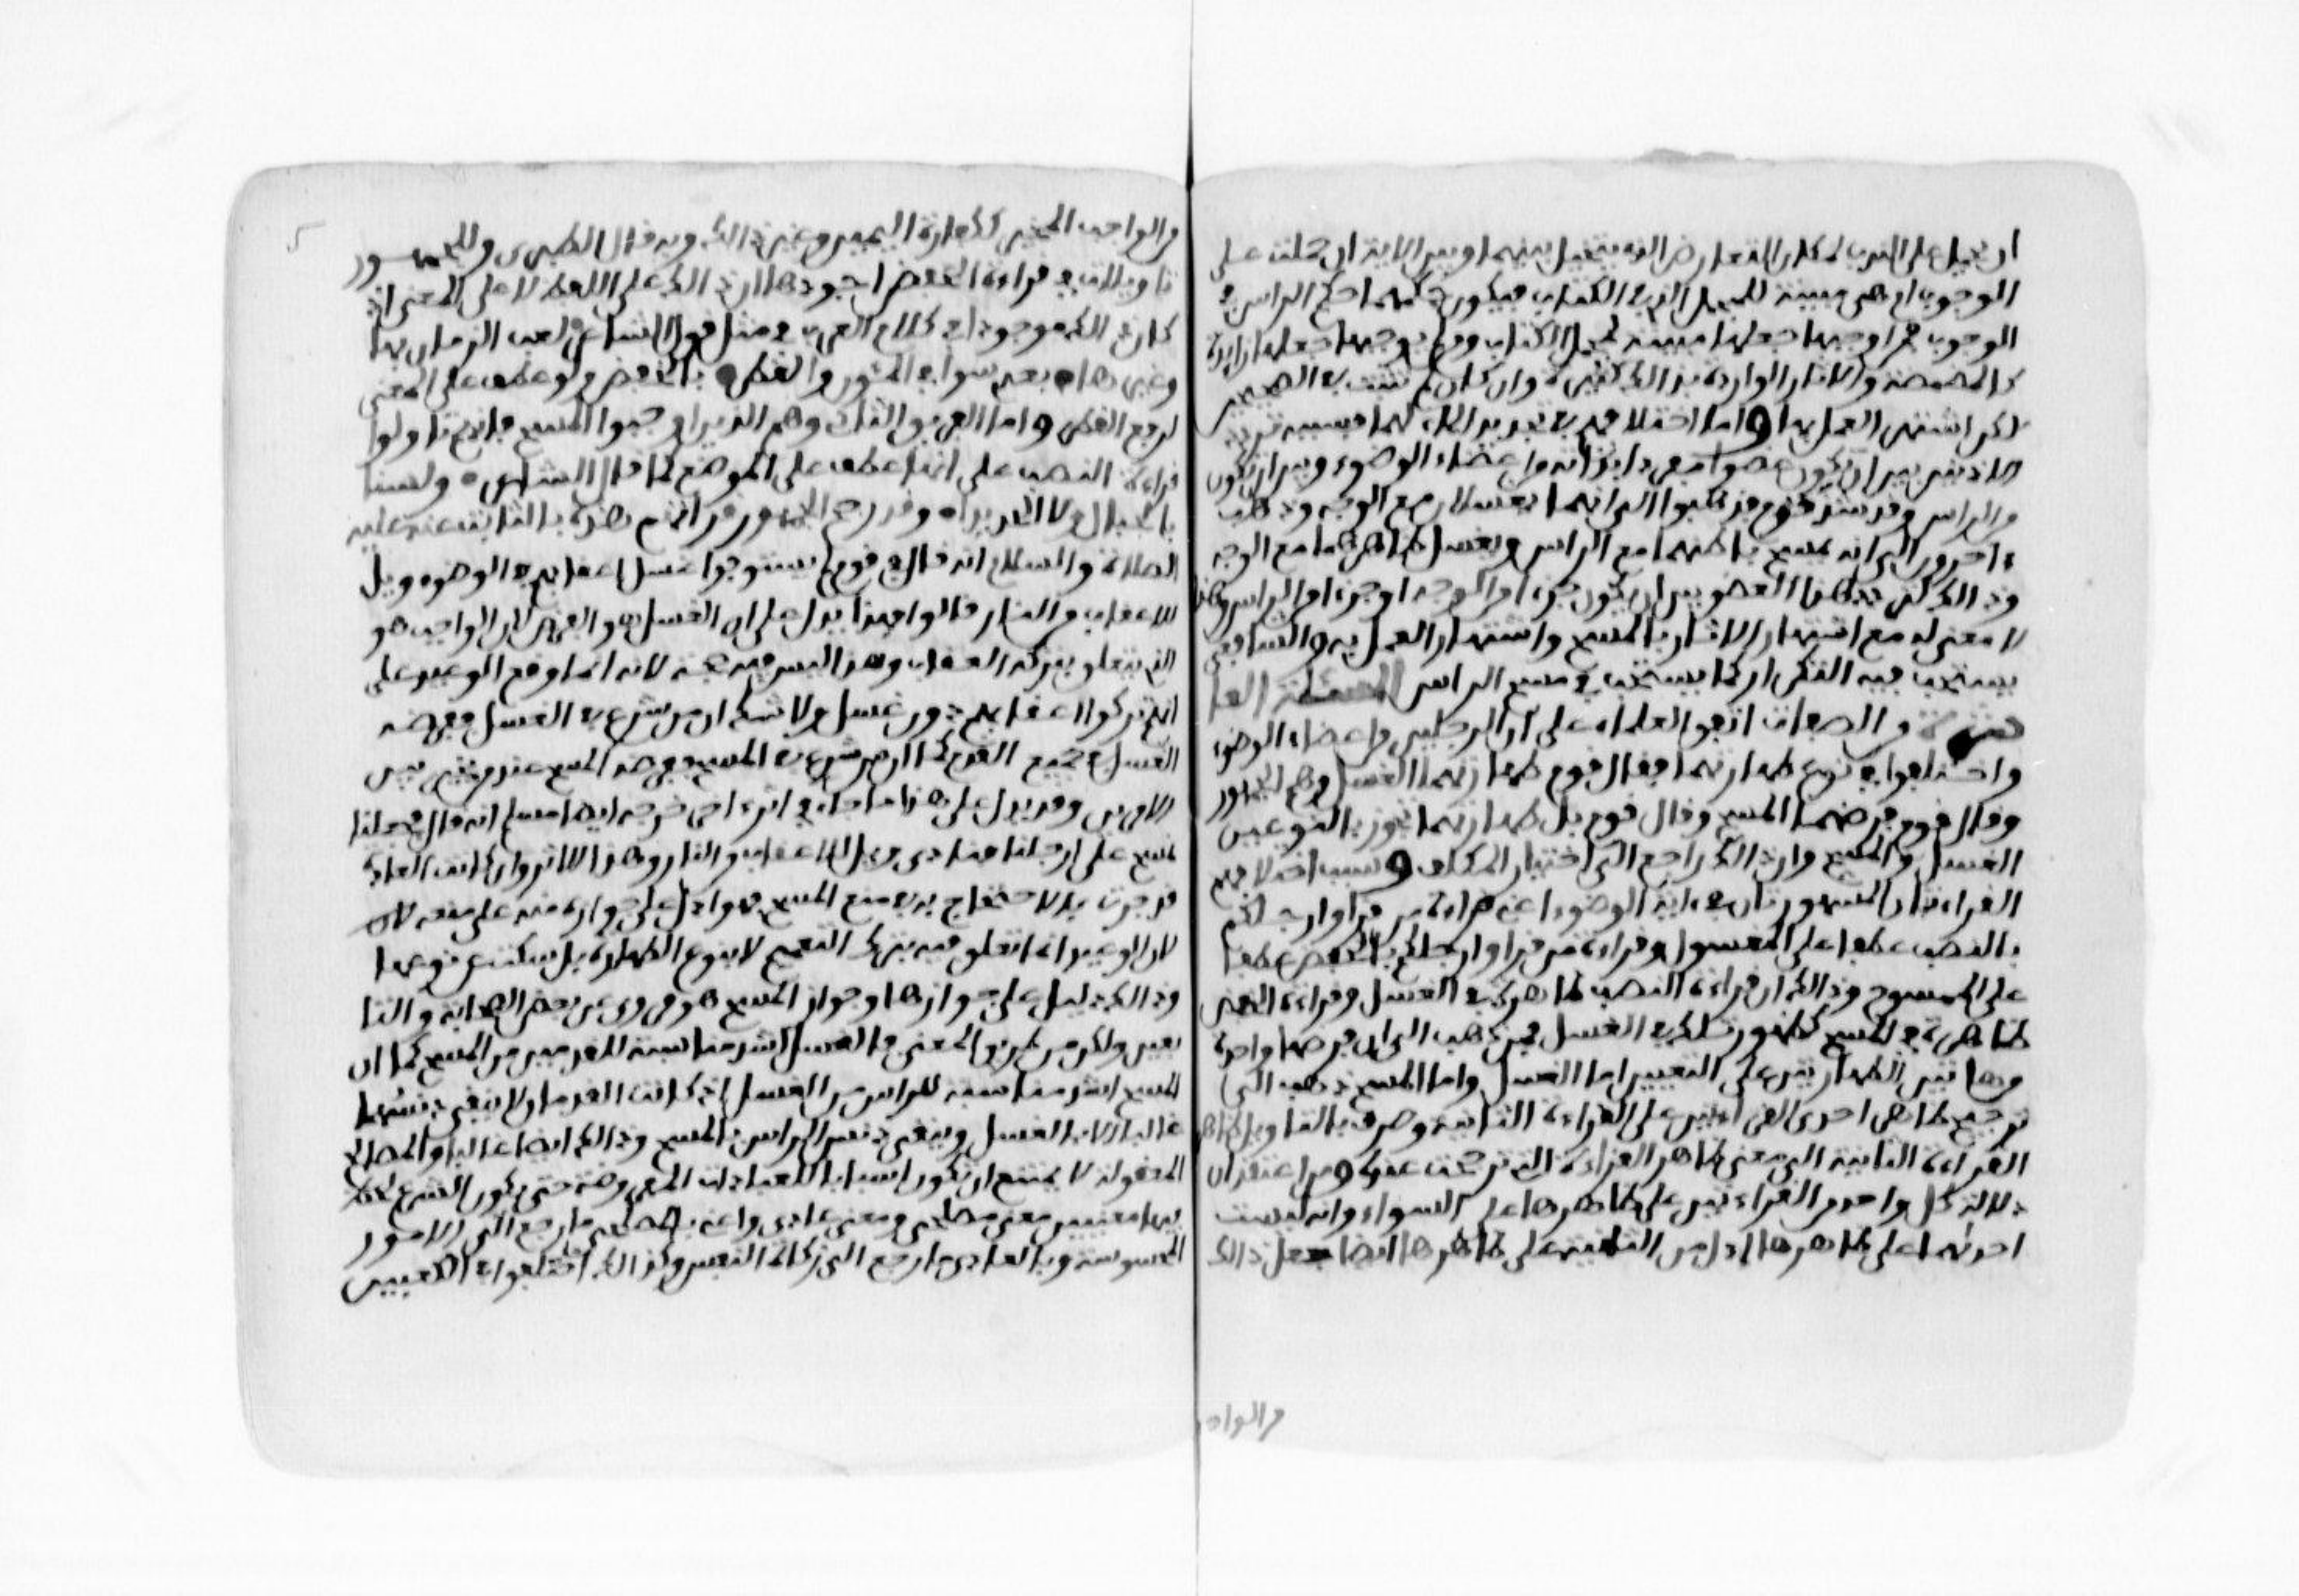 ان يحمل على الندب لمكان التعارض الذي يتخيل بينها وبين الاية ان حملت على
الوجوب اذ هي مبينة للمجمل الذي في الكتاب فيكون حكمهما حكم الراس في
الوجوب فمن اوجبها جعلها مبينة لمجمل الكتاب ومن لم يوجبها جعلها زايدة
كالمضمضة والاثار الواردة بذالك كثيرة وان كان لم تثبت في الصحيح
لكن اشتهر العمل بها واما اختلافهم في تجديد الماء لهما فسببه تردد
الاذنين بين ان يكون عضوا مفردا بذاته من اعضاء الوضوء وبين ان يكون
من الراس وقد شذ قوم فذهبوا الى انهما يغسلان مع الوجه وذهب
ءاخرون الى انه يمسح باطنهما مع الراس ويغسل ظاهرهما مع الوجه
وذالك لتردد هذا العضو بين ان يكون جزءا من الوجه او جزءا من الراس وهذا
لا معنى له مع اشتهار الاثار بالمسح واشتهار العمل به والشافعي
يستحب فيه التكرار كما يستحب في مسح الراس المسئلة العا
شرة من الصفات اتفق العلماء على ان الرجلين من اعضاء الوضوء
واختلفوا في نوع طهارتهما فقال قوم طهارتهما الغسل وهم الجمهور
وقال قوم فرضهما المسح وقال قوم بل طهارتهما تجوز بالنوعين
الغسل والمسح وان ذالك راجع الى اختيار المكلف وسبب اختلافهم
القراءتان المشهورتان في ءاية الوضوء اعني قراءة من قرا وارجلكم
بالنصب عطفا على المغسول وقراءة من قرا وارجلكم بالخفض عطفا
على الممسوح وذالك ان قراءة النصب ظاهرة في الغسل وقراءة الخفض
ظاهرة في المسح كظهور تلك في الغسل فمن ذهب الى ان فرضهما واحد
من هاتين الطهارتين على التعيين اما الغسل واما المسح ذهب الى
ترجيح ظاهر احدى القراءتين على القراءة الثانية وصرف بالتاويل ظاهر
القراءة الثانية الى معنى ظاهر القراءة التي ترجحت عنده ومن اعتقد ان
دلالة كل واحدة من القراءتين على ظاهرها على السواء وانه ليست
احداهما على ظاهرها ادل من الثانية على ظاهرها ايضا جعل ذالك
من الواجـ
من الواجب المخير ككفارة اليمين وغير ذالك وبه قال الطبري وللجمهور
تاويلات في قراءة الخفض اجودها ان ذالك على اللفظ لا على المعنى اذ
كان ذالك موجودا في كلام العرب في مثل قول الشاعر لعب الزمان بها
وغيرها بعدي سوافي المور والقطر بالخفض ولو عطف على المعنى
لرفع القطر واما الفريق الثاني وهم الذين اوجبوا المسح فانهم تاولوا
قراءة النصب على انها عطف على الموضع كما قال الشاعر ولسنا
بالجبال ولا الحديدا وقد رجح الجمهور قراءتهم هذه بالثابت عنه عليه
الصلاة والسلام انه قال في قوم لم يستوفوا غسل اعقابهم في الوضوء ويل
للاعقاب من النار قالوا فهذا يدل على ان الغسل هو الفرض لان الواجب هو
الذي يتعلق بتركه العقاب وهذا ليس فيه حجة لانه انما وقع الوعيد على
انهم تركوا اعقابهم دون غسل ولا شك ان من شرع في الغسل ففرضه
الغسل في جميع القدم كما ان من شرع في المسح ففرضه المسح عند من يخير بين
الامرين وقد يدل على هذا ما جاء في اثر ءاخر خرجه ايضا مسلم انه قال فجعلنا
نمسح على ارجلنا فنادى ويل للاعقاب من النار وهذا الاثر وان كانت العادة
قد جرت بالاحتجاج به في منع المسح فهو ادل على جوازه منه على منعه لان
لان الوعيد انما تعلق فيه بترك التعميم لا بنوع الطهارة بل سكت عن نوعها
وذالك دليل على جوازها وجواز المسح هو مروي عن بعض الصحابة والتا
بعين ولكن من طريق المعنى فالغسل اشد مناسبة للقدمين من المسح كما ان
المسح اشد مناسبة للراس من الغسل اذ كانت القدمان لا ينقى دنسهما
غالبا الا بالغسل وينقى دنس الراس بالمسح وذالك ايضا غالبا والمصالح
المعقولة لا يمتنع ان تكون اسبابا للعبادات المفروضة حتى يكون الشرع لاحظ
فيها معنيين معنى مصلحي ومعنى عبادي واعني بالمصلحي ما رجع الى الامور
المحسوسة وبالعبادي ما رجع الى زكاة النفس وكذالك اختلفوا في الكعبين